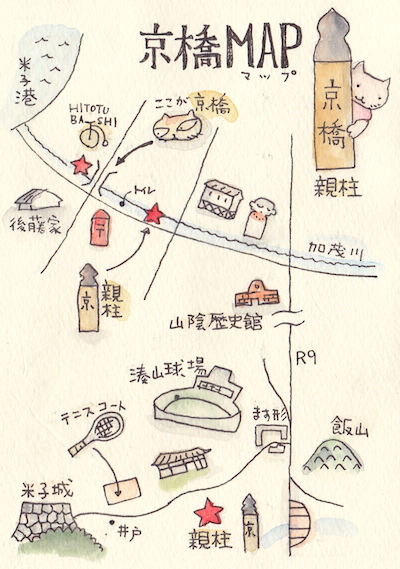 京橋MAP
マップ
京橋
親柱
米子港
HITOTU
BASHI
ここが京橋
トイレ
後藤家
〒
京
親柱
加茂川
山陰歴史館
R9
湊山球場
ます形
テニスコート
飯山
米子城
井戸
親柱
京